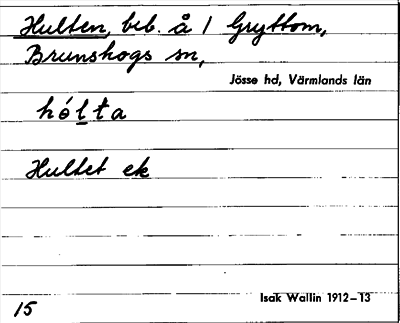 Hulten, beb. å 1 Gryttom,
Brunskogs sn,
Jösse hd, Värmlands län
hóḷta
Hultet ek
Isak Wallin 1912–13
15